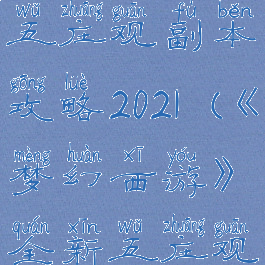 wǔ zhuāng guān fù běn
五庄观副本
gōng lüè
攻略2021（《
mèng huàn xī yóu
梦幻西游》
quán xīn wǔ zhuāng guān
全新五庄观